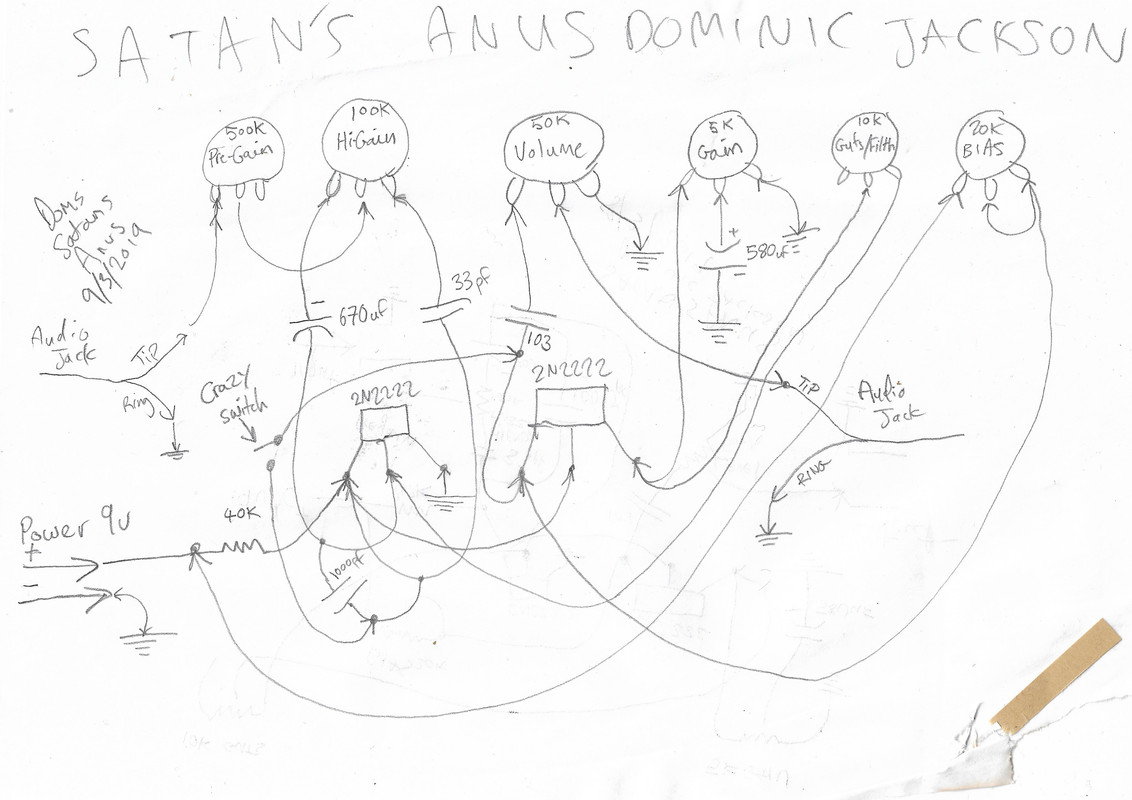 SATAN'S ANUS DOMINIC JACKSON
500K
Pre-Gain
100K
Hi-Gain
50K
Volume
5K
Gain
10K
Guts/Filth
20K
BIAS
Doms
Satans
Anus
9/3/2019
+
580uf
33pf
670uf
103
Audio
Jack
Tip
Ring
Crazy
switch
2N2222
2N2222
Tip
Audio
Jack
RING
Power 9v
+
-
40K
1000pf